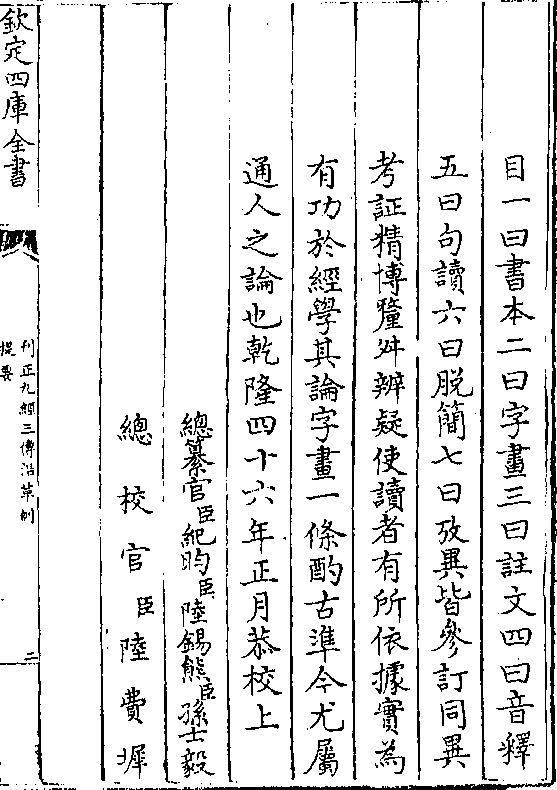 目一曰書本二曰字畫三曰註文四曰音釋
五曰句讀六曰脱簡七曰攷異皆參訂同異
考証精博釐舛辨疑使讀者有所依據實為
有功於經學其論字畫一條酌古準今尤屬
通人之論也乾隆四十六年正月恭校上
總纂官臣紀昀臣陸錫熊臣孫士毅
總校官臣陸費墀
欽定四庫全書
刋正九經三傳沿革例
提要
二